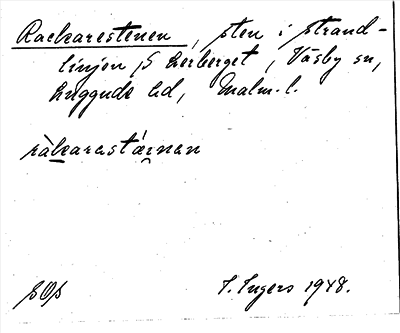 Rackarestenen, sten i strand-
linjen S Lerberget, Väsby sn,
Luggude hd, Malm. l.
ràkarastǽrnan
SOS
I. Ingers 1948.